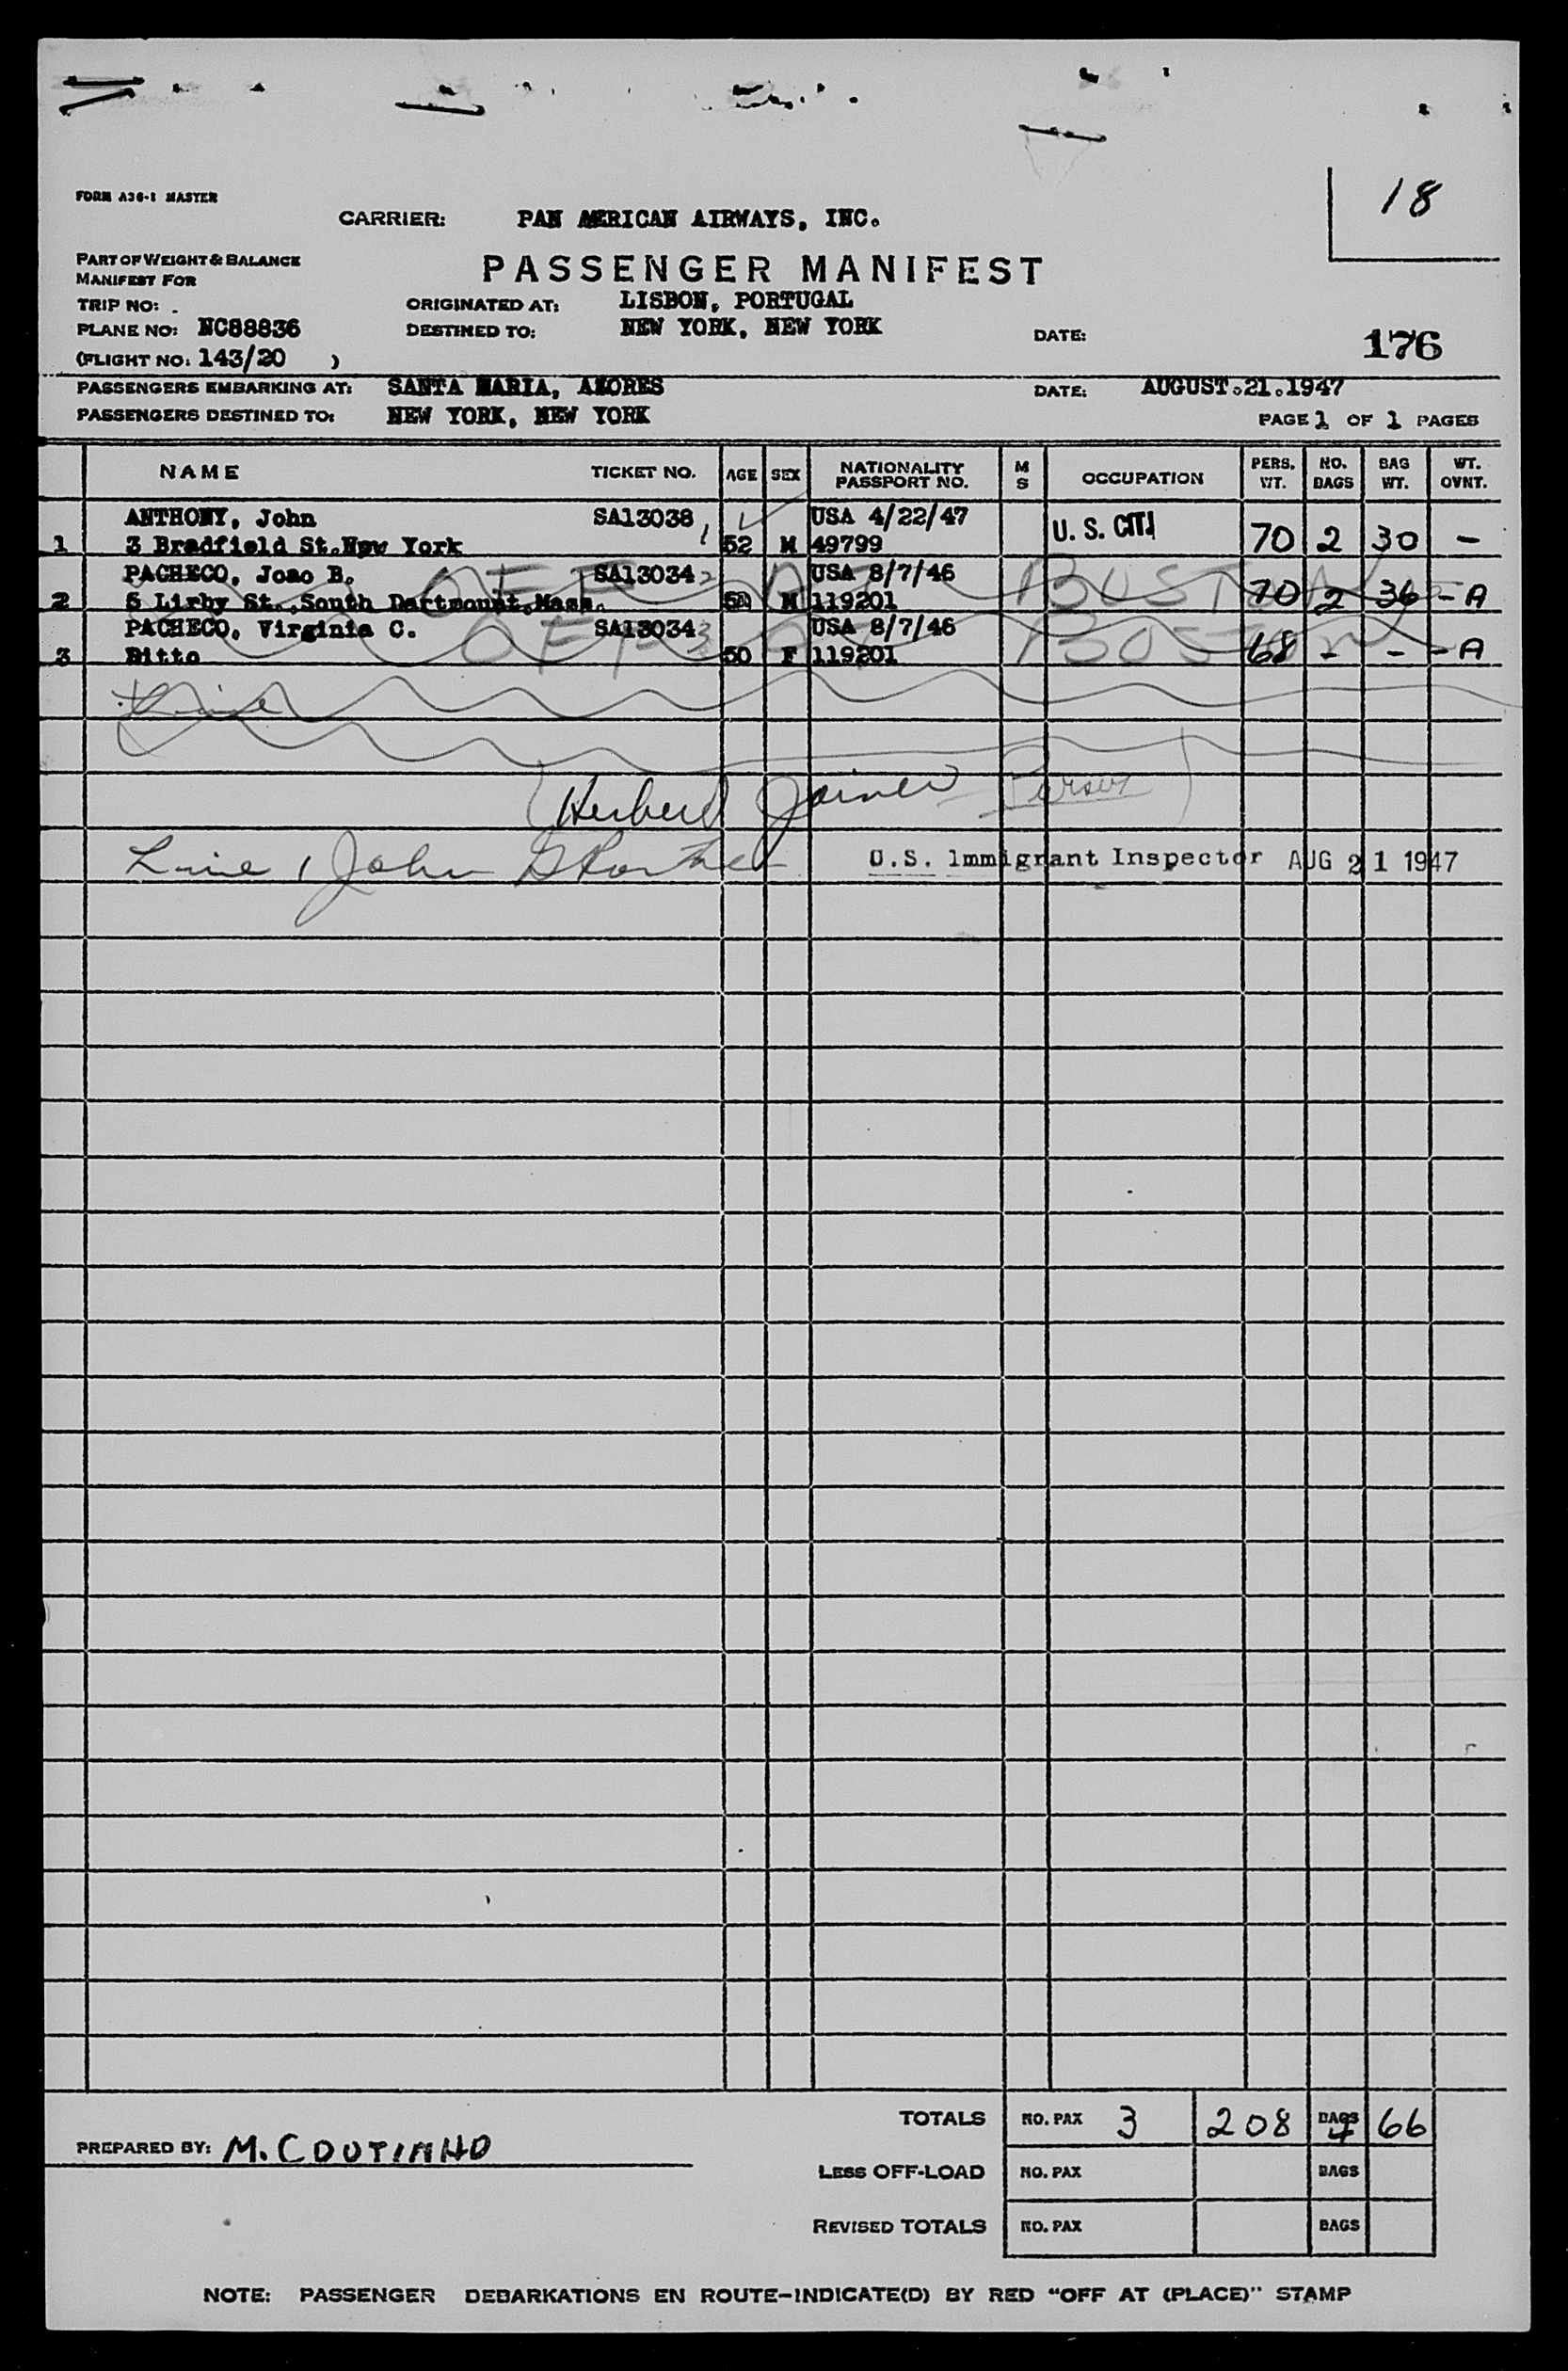 FORM A36-1 MASTER
18
CARRIER: PAN AMERICAN AIRWAYS, INC.
PART OF WEIGHT & BALANCE
MANIFEST FOR
PASSENGER MANIFEST
TRIP NO: .
ORIGINATED AT: LISBON, PORTUGAL
PLANE NO: NC88836
DESTINED TO: NEW YORK, NEW YORK
DATE:
176
(FLIGHT NO: 143/20 )
PASSENGERS EMBARKING AT: SANTA MARIA, AZORES
DATE: AUGUST.21.1947
PASSENGERS DESTINED TO: NEW YORK, NEW YORK
PAGE 1 OF 1 PAGES
NAME TICKET NO. AGE SEX NATIONALITY PASSPORT NO. M S OCCUPATION PERS. WT. NO. BAGS BAG WT. WT. OVNT.
ANTHONY, John SA13038 USA 4/22/47 U. S. CIT.
1 3 Bradfield St.New York 1 52 M 49799 70 2 30 -
PACHECO, Joao B. SA13034 2 USA 8/7/46
OFF AT BOSTON
2 5 Lirby St.,South Dartmount,Mass. M 119201 70 2 36 - A
PACHECO, Virginia C. SA13034 3 USA 8/7/46
OFF AT BOSTON
3 Ditto 50 F 119201 68 - - - A
Herbert Joiner Purser
Line 1 John U.S. Immigrant Inspector AUG 21 1947
TOTALS NO. PAX 3 208 BAGS 4 66
PREPARED BY: M. COUTINHO
LESS OFF-LOAD NO. PAX BAGS
REVISED TOTALS NO. PAX BAGS
NOTE: PASSENGER DEBARKATIONS EN ROUTE-INDICATE(D) BY RED "OFF AT (PLACE)" STAMP